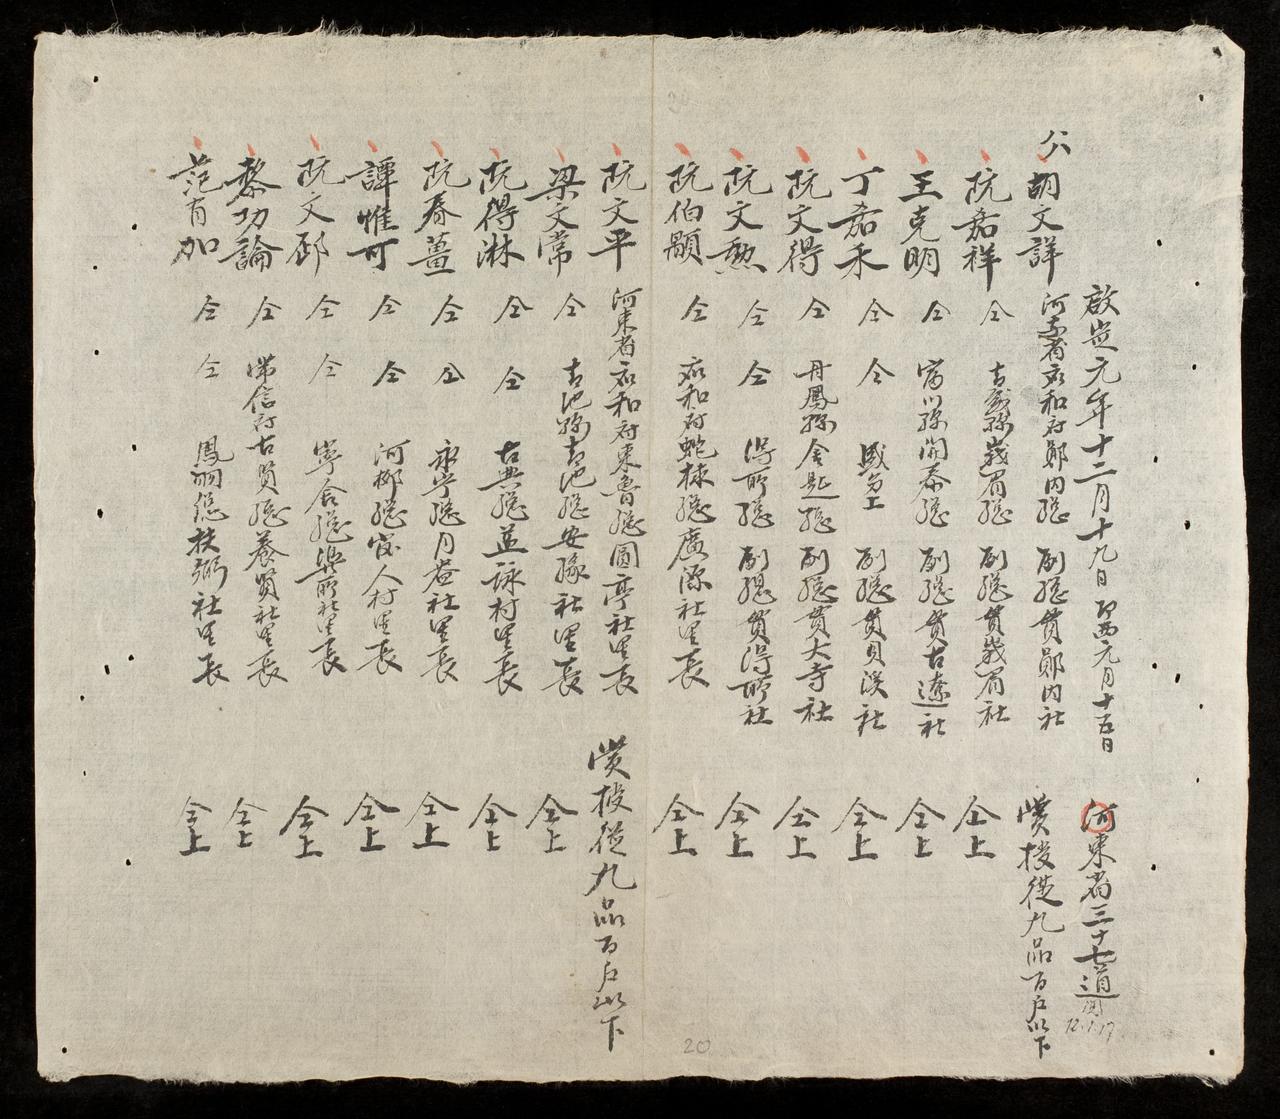 啟定元年十二月十九日 卽西元月十五日 河東省三十七道
12.1.17
公
胡文詳 河東省 和府鄚內總副總貫鄚內社 賞授從九品百戶以下
阮嘉祥 仝 峩眉總副總貫峩眉社 仝上
王克明 仝 富川縣開泰總副總貫古遼社 仝上
丁嘉禾 仝 仝 副總貫貝渓社 仝上
阮文得 仝 丹鳳縣金 總副總貫大寺社 仝上
阮文勲 仝 仝 得所總副總貫得所社 仝上
阮伯顯 仝 和府 總廣源社里長 仝上
阮文平 河東省 和府東魯總圓亭社里長 賞授從九品百戶以下
梁文常 仝 青池縣青池總安緣社里長 仝上
阮得淋 仝 仝 古典總並詠村里長 仝上
阮春薑 仝 仝 永寧總月盎社里長 仝上
譚惟可 仝 仝 河柳總 人村里長 仝上
阮文 仝 仝 寧舍總 社里長 仝上
黎功論 仝 常信府古賢總養賢社里長 仝上
范有加 仝 仝 鳳翊總扶弼社里長 仝上
20